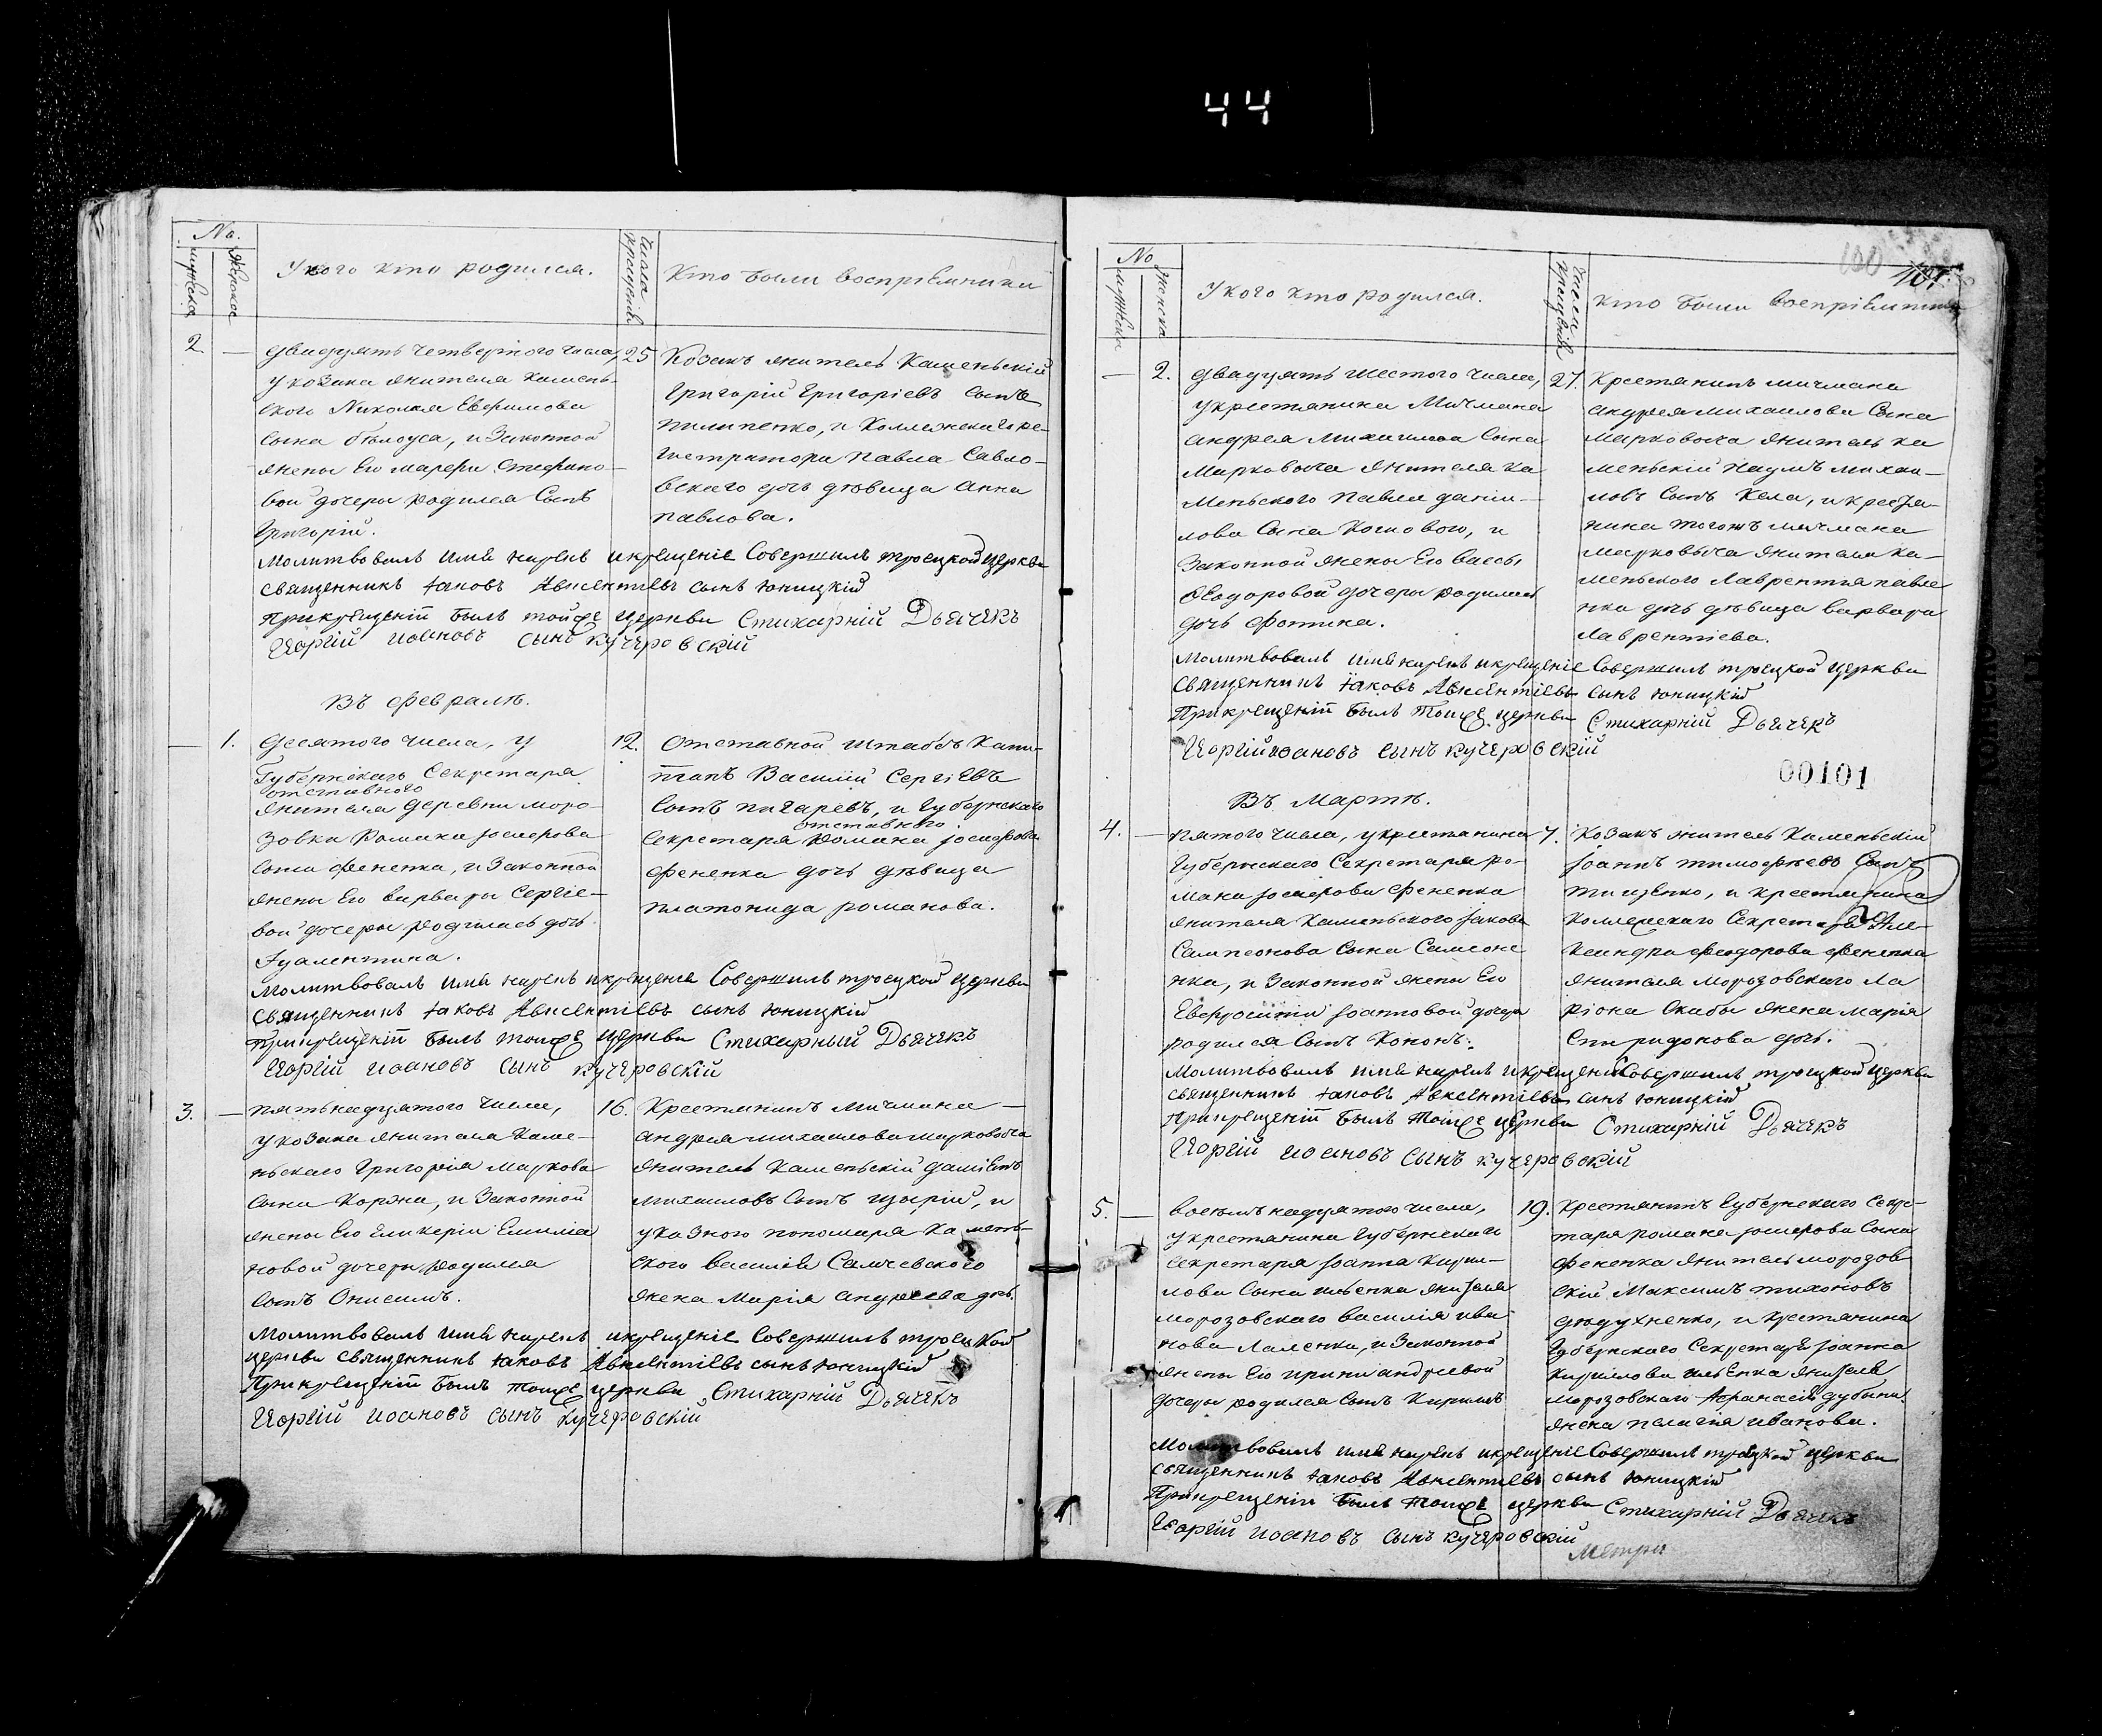 44
No.
мужска
женска
У кого кто родился.
Числа крещенiй
Кто были воспрiемники
2 —
двадцять четвертого числа,
у козака жителя камень-
ского Николая Евфимова
сына белоуса, и Законной
жены Его марфы Стефано-
вой дочеры родился Сынъ
Григорiй.
25
Козакъ житель Каменьскiй
Григорiй Григорiевъ Сынъ
пилипенко, и Коллежскаго ре-
гистратора Павла Савло-
вскаго дочь дѣвица Анна
павлова.
Молитвовалъ имя нарекъ и крещенiе Совершилъ троецкой церкви
священникъ Iаковъ Авксентiевъ сынъ Юницкiй
При крещенiй былъ тойже церкви Стихарнiй Дьячекъ
Георгiй Иоановъ Сынъ Кучеровскiй
Въ февралѣ.
— 1.
десятого числа, у
Губернскаго Секретаря
отставного
жителя деревни моро-
зовки Романа Iосифова
сына фененка, и Законной
жены Его варвары Сергiе-
вой дочеры родилась дочь
12.
Отставной штабсъ Капи-
танъ Василiй Сергiевъ
сынъ пигаревъ, и Губернскаго
отставного
Секретаря Романа Iосифова
фененка дочь дѣвица
платонида романова.
Молитвовалъ имя нарекъ и крещенiе Совершилъ троецкой церкви
священникъ Iаковъ Авксентiевъ сынъ Юницкiй
При крещенiй былъ тойже церкви Стихарный Дьячекъ
Георгiй Иоановъ Сынъ Кучеровскiй
3. —
пятьнадцятого числа,
у козака жителя Каме-
ньскаго Григорiя Маркова
сына Коржа, и Законной
жены Его Гликерiи Емилiа
новой дочеры родился
сынъ Онисимъ.
16.
Крестянинъ Мичмана
андрея михаилова марковыча
житель Каменьскiй данiилъ
Михаиловъ Сынъ, и
указного пономаря Камень-
ского Василiя Самчевского
жена Марiя андреева дочь.
Молитвовалъ имя нарекъ и крещенiе Совершилъ троецкой
церкви священникъ Iаковъ Авксентiевъ сынъ Юницкiй
При крещенiй былъ тойже церкви Стихарнiй Дьячекъ
Георгiй Иоановъ Сынъ Кучеровскiй
100 101.
No
мужска
женска
У кого кто родился.
Числа крещенiй
кто были воспрiемники
— 2.
двадцять шестого числа,
у крестянина Мичмана
андрея Михаилова Сына
Марковыча жителя ка
меньского павла данiи-
лова Сына, и
Законной жены Его вассы
Феодоровой дочеры родилась
дочь фотина.
27.
Крестянинъ мичмана
андрея михаилова Сына
марковыча житель ка
меньскiй наумъ михаи-
ловъ Сынъ Кела, и крестя-
нина тогожъ мичмана
марковыча жителя ка-
меньского Лаврентiя павле
нка дочь дѣвица варвара
Лаврентiева.
Молитвовалъ имя нарекъ и крещенiе Совершилъ троецкой церкви
священникъ Iаковъ Авксентiевъ сынъ Юницкiй
При крещенiй былъ тойже церкви Стихарнiй Дьячекъ
Георгiй Иоановъ Сынъ Кучеровскiй
00101
Въ Мартѣ.
4. —
пятого числа, у крестянина
Губернскаго Секретаря ро-
мана Iосифова фененка
жителя Каменьского Iакова
Сампсонова Сына Самсоне
нка, и Законной жены Его
Евфросинiи Iоанновой дочеры
родился Сынъ Кононъ.
7.
Козакъ житель Каменьскiй
Iоаннъ тимофѣевъ Сынъ
тищенко, и крестянина
Коллежскаго Секретаря Але-
ксандра Феодорова фененка
жителя Морозовского Ла
рiона Скабы жена марiя
Спиридонова дочь.
Молитвовалъ имя нарекъ и крещенiе Совершилъ троецкой церкви
священникъ Iаковъ Авксентiевъ сынъ Юницкiй
При крещенiй былъ тойже церкви Стихарнiй Дьячекъ
Георгiй Иоановъ Сынъ Кучеровскiй
5. —
восемьнадцятого числа,
у крестянина Губернскаго
Секретаря Iоанна Кири-
лова Сына жителя
морозовского василiя ива
нова, и Законной
жены Его ирины андреевой
дочеры родился Сынъ Кирилъ
19.
Крестянинъ Губернскаго Секре-
таря романа Iосифова Сына
фененка житель морозов
скiй Максимъ тихоновъ
, и крестянина
Губернскаго Секретаря Iоанна
Кирилова жителя
морозовскаго Афанасiя
жена пелагiя иванова.
Молитвовалъ имя нарекъ и крещенiе Совершилъ троецкой церкви
священникъ Iаковъ Авксентiевъ сынъ Юницкiй
При крещенiи былъ тойже церкви Стихарнiй Дьячекъ
Георгiй Иоановъ Сынъ Кучеровскiй
Метри